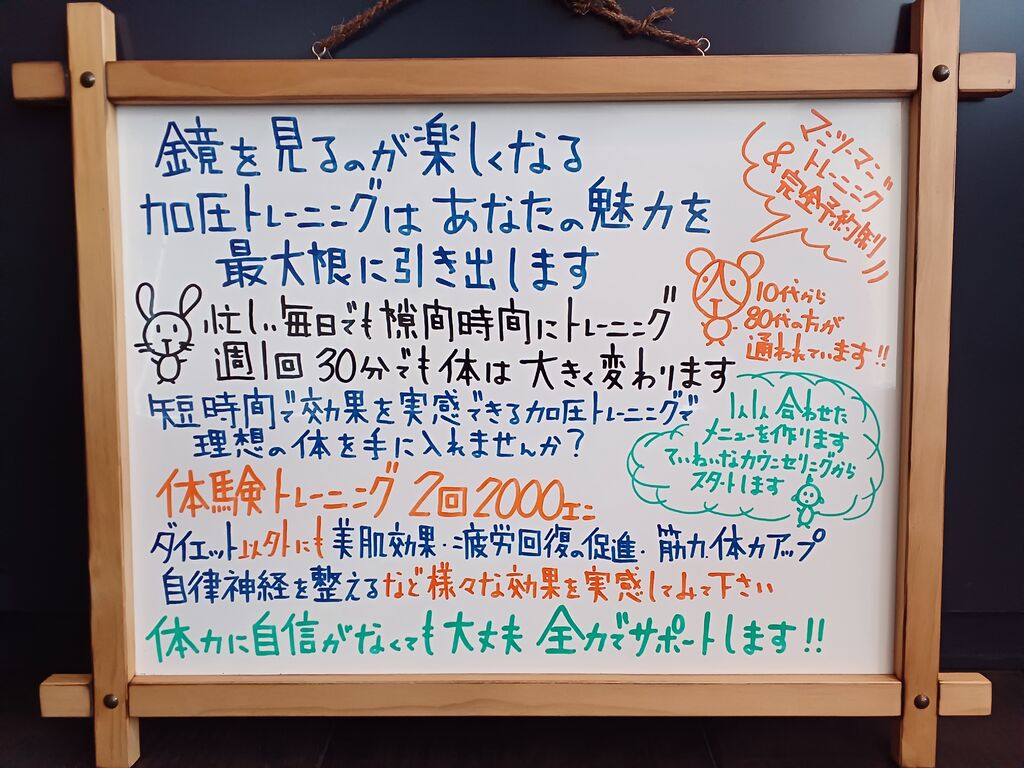 鏡を見るのが楽しくなる
加圧トレーニングは あなたの魅力を
最大根に引き出します
マンツーマン
トレーニング
&完全予約制
10代から
80代の方が
通われています!!
忙しい毎日でも隙間時間にトレーニング
週1回 30分でも体は大きく変わります
短時間で効果を実感できる加圧トレーニングで
理想の体を手に入れませんか?
1人1人合わせた
メニューを作ります
ていねいなカウンセリングから
スタートします
体験トレーニング 2回2000エン
ダイエット以外にも美肌効果・疲労回復の促進・筋力体力アップ
自律神経を整えるなど様々な効果を実感してみて下さい
体力に自信がなくても大丈夫 全力でサポートします!!